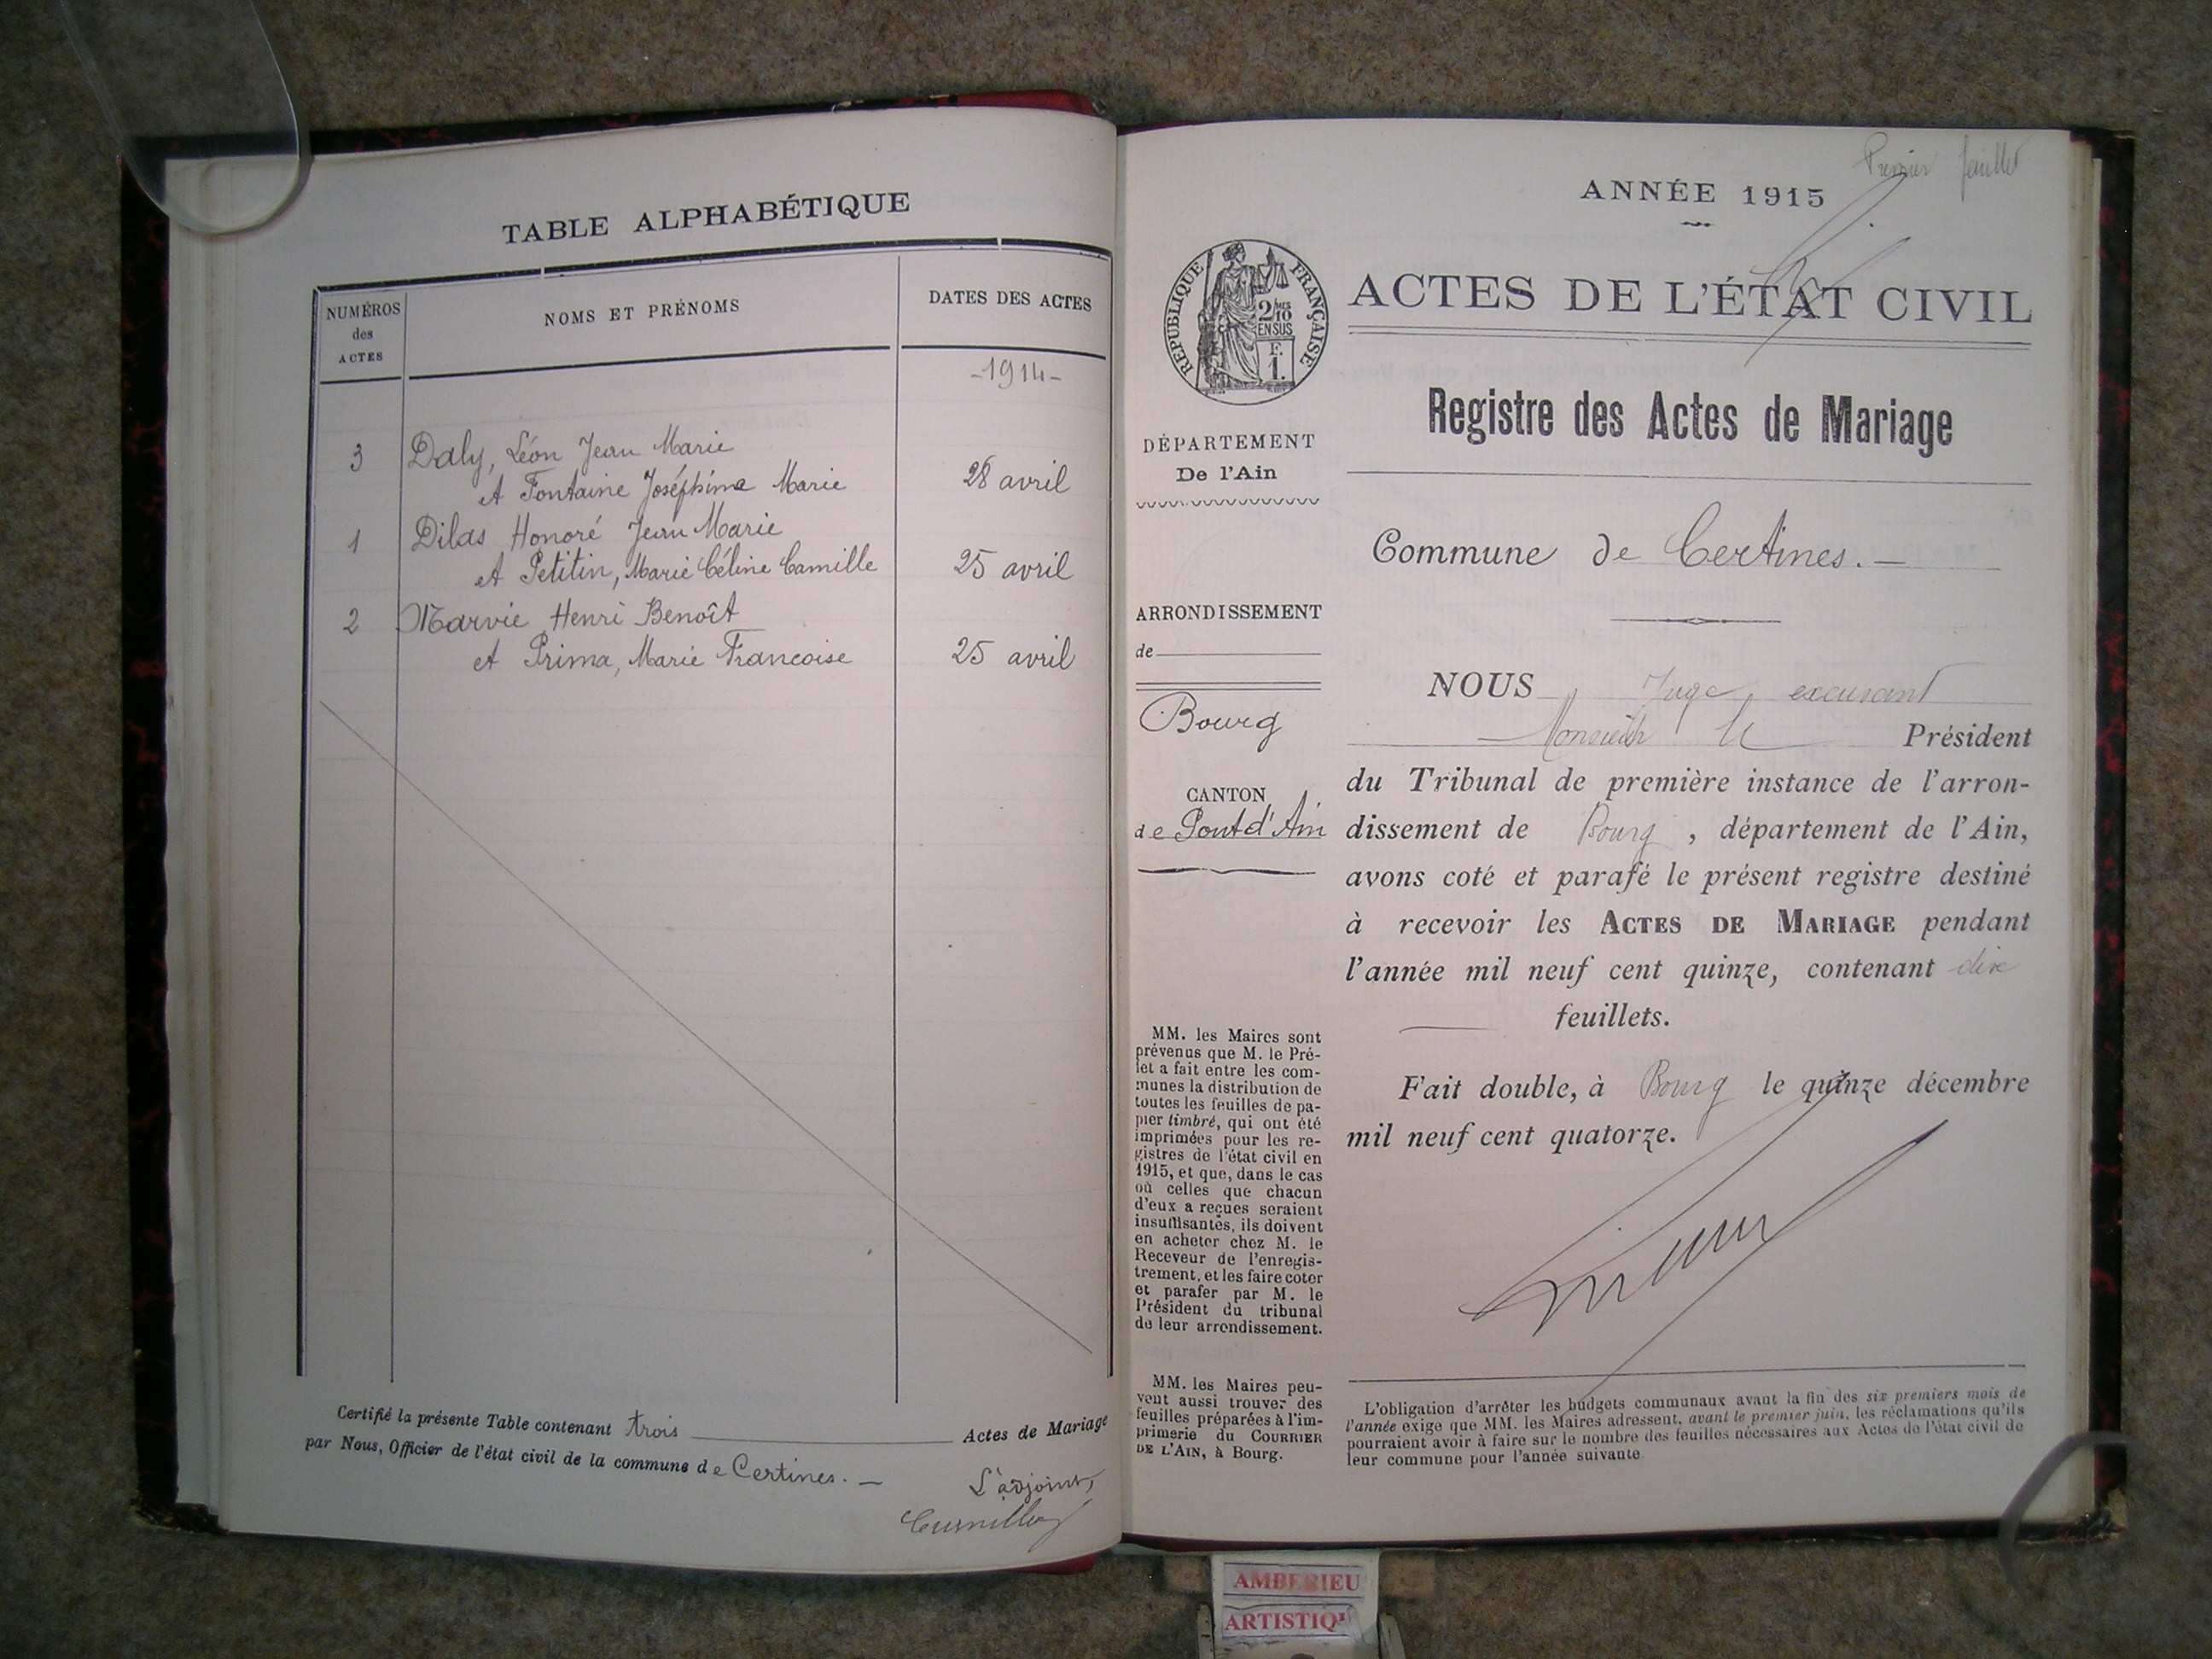 TABLE ALPHABÉTIQUE
NUMÉROS
des
ACTES
NOMS ET PRÉNOMS
DATES DES ACTES
-1914-
3 Daly, Léon Jean Marie
et Fontaine Joséphine Marie 28 avril
1 Dilas Honoré Jean Marie
et Petitin, Marie Céline Camille 25 avril
2 Marvie Henri Benoît
et Prima, Marie Francoise 25 avril
Certifié la présente Table contenant trois Actes de Mariage
par Nous, Officier de l'état civil de la commune de Certines. —
L'adjoint,
Premier feuillet
ANNÉE 1915
RÉPUBLIQUE FRANÇAISE
2/10
EN SUS
F.
1.
ACTES DE L'ÉTAT CIVIL
Registre des Actes de Mariage
DÉPARTEMENT
De l'Ain
Commune de Certines. —
ARRONDISSEMENT
de
Bourg
CANTON
de Pont d'Ain
MM. les Maires sont
prévenus que M. le Pré-
fet a fait entre les com-
munes la distribution de
toutes les feuilles de pa-
pier timbré, qui ont été
imprimées pour les re-
gistres de l'état civil en
1915, et que, dans le cas
où celles que chacun
d'eux a reçues seraient
insuffisantes, ils doivent
en acheter chez M. le
Receveur de l'enregis-
trement, et les faire coter
et parafer par M. le
Président du tribunal
de leur arrondissement.
MM. les Maires peu-
vent aussi trouver des
feuilles préparées à l'im-
primerie du COURRIER
DE L'AIN, à Bourg.
NOUS Juge excusant
Monsieur le Président
du Tribunal de première instance de l'arron-
dissement de Bourg, département de l'Ain,
avons coté et parafé le présent registre destiné
à recevoir les ACTES DE MARIAGE pendant
l'année mil neuf cent quinze, contenant dix
feuillets.
Fait double, à Bourg le quinze décembre
mil neuf cent quatorze.
L'obligation d'arrêter les budgets communaux avant la fin des six premiers mois de
l'année exige que MM. les Maires adressent, avant le premier juin, les réclamations qu'ils
pourraient avoir à faire sur le nombre des feuilles nécessaires aux Actes de l'état civil de
leur commune pour l'année suivante
AMBERIEU
ARTISTIQ